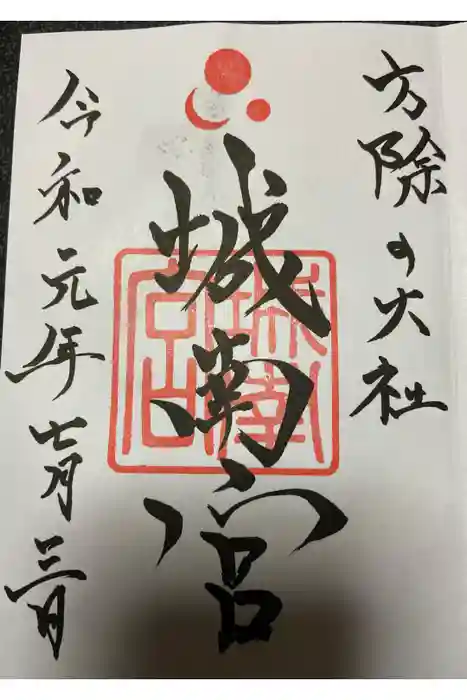 方除の大社
城南宮
令和元年七月三日
城南宮印